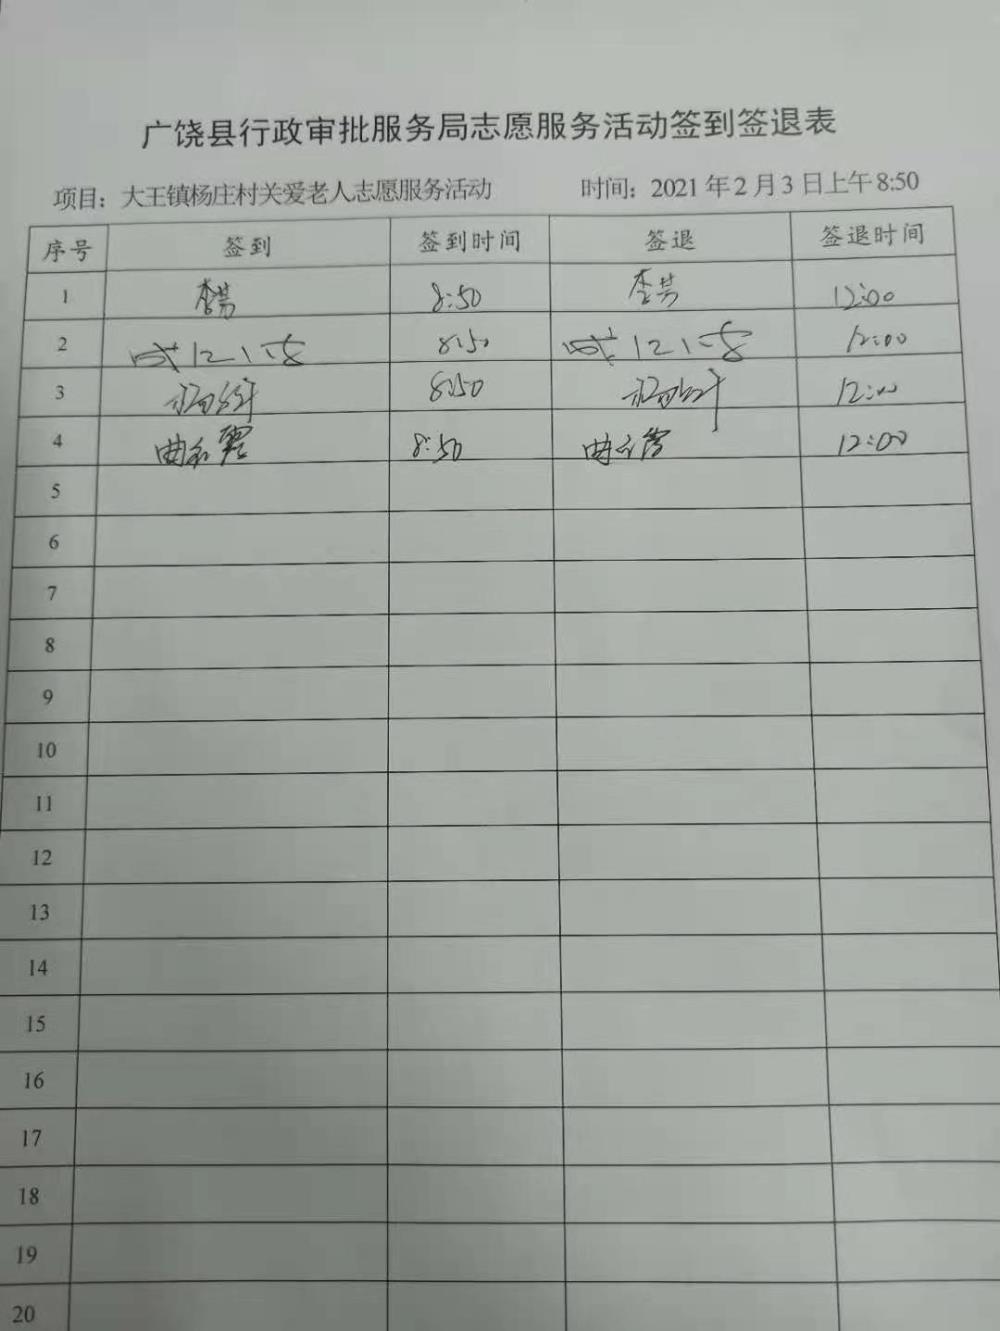 广饶县行政审批服务局志愿服务活动签到签退表
项目：大王镇杨庄村关爱老人志愿服务活动 时间：2021年2月3日上午8:50
序号 签到 签到时间 签退 签退时间
1 8:50 12:00
2 8:50 12:00
3 8:50 12:00
4 8:50 12:00
5
6
7
8
9
10
11
12
13
14
15
16
17
18
19
20